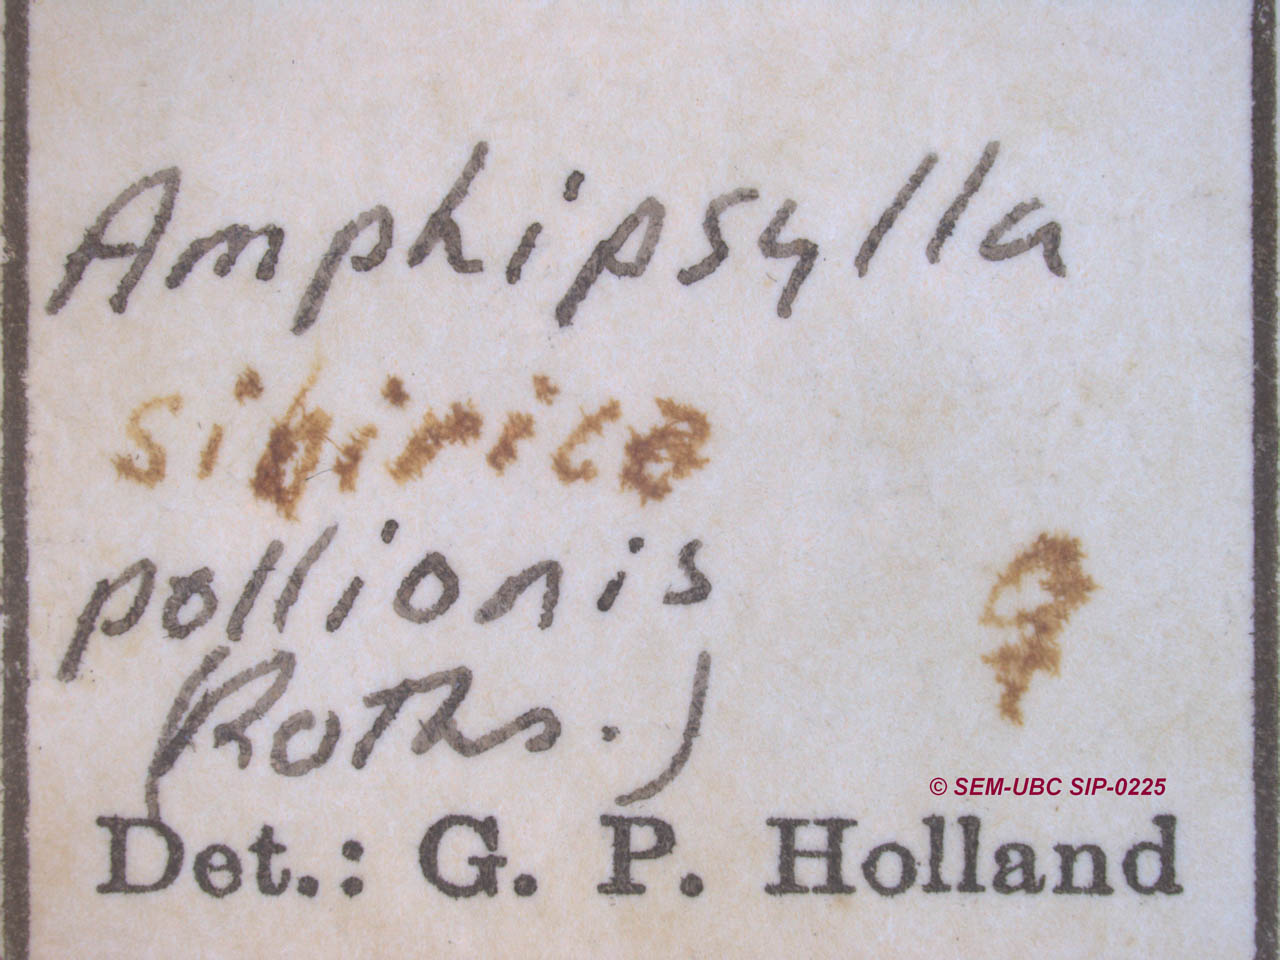 Amphipsylla
sibirica
pollionis
♀
(Roths.)
© SEM-UBC SIP-0225
Det.: G. P. Holland